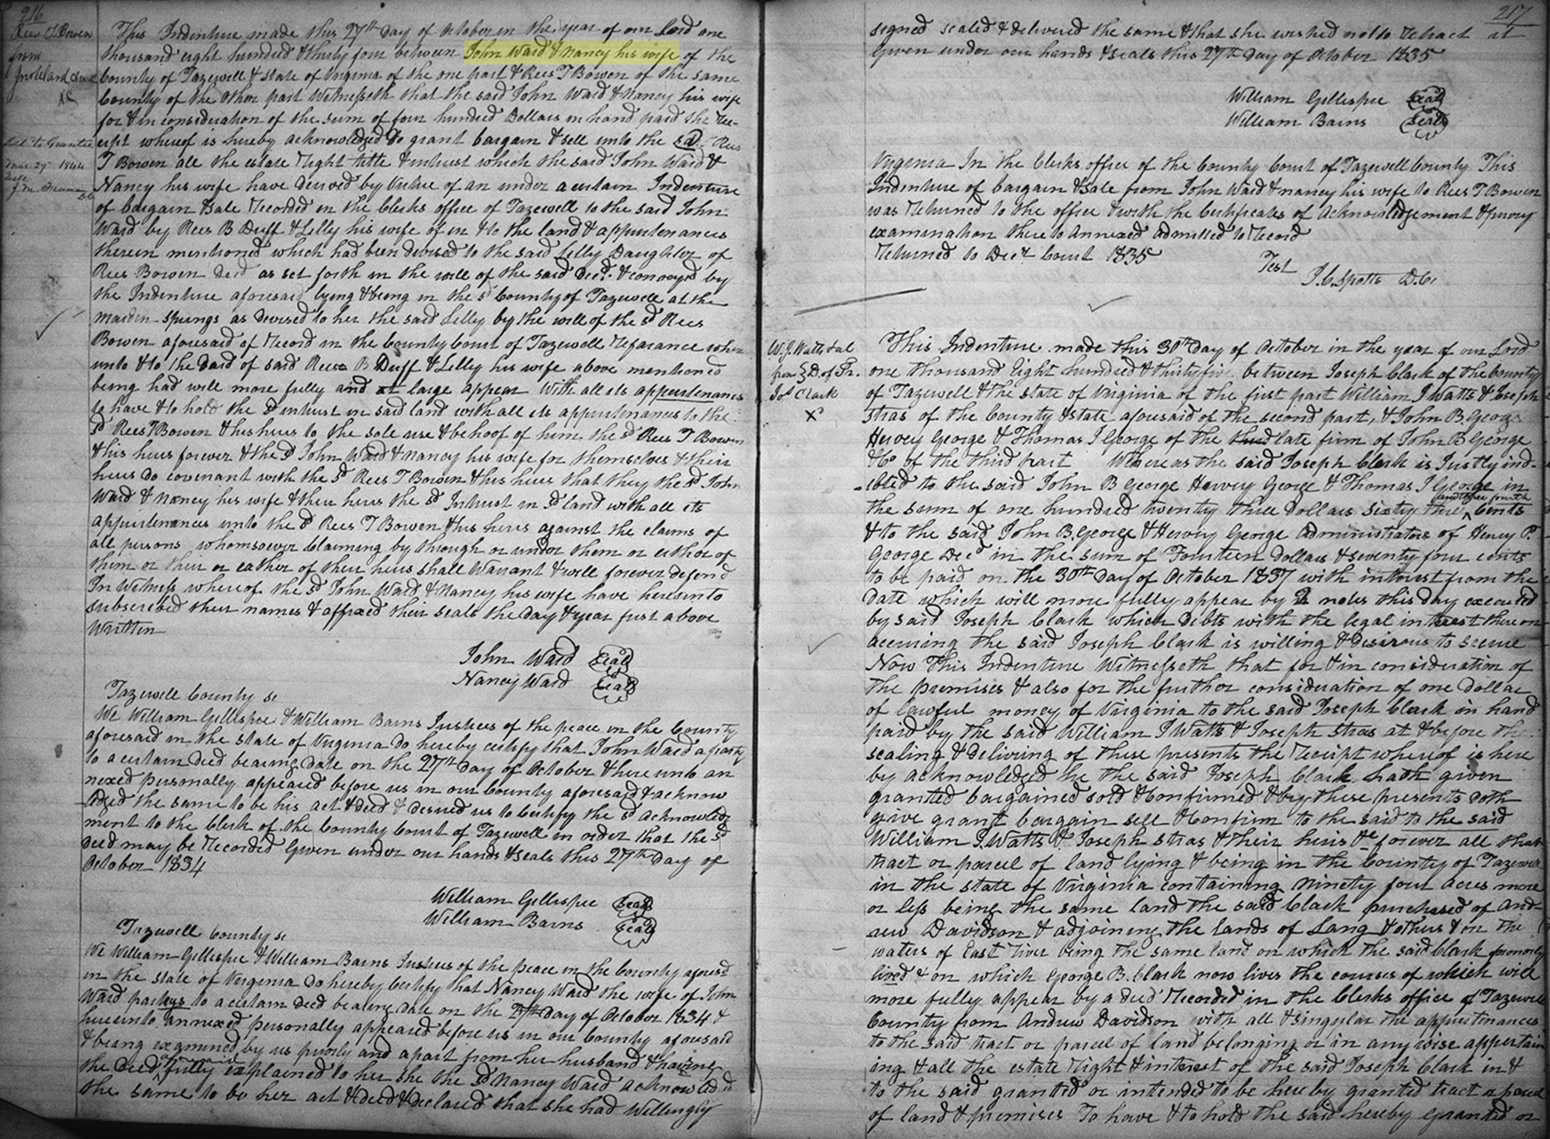 216
Rees T Bowen
from
This Indenture made this 27th day of October in the year of our Lord one
thousand eight hundred & thirty four between John Ward & Nancy his wife of the
County of Tazewell & state of Virginia of the one part & Rees T Bowen of the same
County of the other part Witnesseth that the said John Ward & Nancy his wife
for & in consideration of the sum of four hundred Dollars in hand paid the re-
ceipt whereof is hereby acknowledged do grant bargain & sell unto the sd. Rees
T Bowen all the estate right title & interest which the said John Ward &
Nancy his wife have derived by virtue of an under a certain Indenture
of bargain & sale recorded in the Clerks office of Tazewell to the said John
Ward by Rees B Duff & Lilly his wife of in & to the land & appurtenances
therein mentioned which had been devised to the said Lilly Daughter of
Rees Bowen Decd as set forth in the will of the said Decd. & conveyd by
the Indenture aforesaid lying & being in the sd County of Tazewell at the
maiden springs as devised to her the said Lilly by the will of the sd Rees
Bowen aforesaid of record in the County Court of Tazewell referance when
unto & to the Deed of said Rees B Duff & Lilly his wife above mentioned
being had will more fully and at large appear With all its appurtenances
to have & to hold the sd intrust in said land with all its appurtenances to the
sd Rees T Bowen & his heirs to the sole use & behoof of him the sd Rees T Bowen
& his heirs forever & the sd John Ward & Nancy his wife for themselves & their
heirs do covenant with the sd Rees T Bowen & his heirs that they the sd John
Ward & Nancy his wife & their heirs the sd Intrust in sd land with all its
appurtenances unto the sd Rees T Bowen & his heirs against the claims of
all persons whomsoever Claiming by through or under them or either of
them or their or eather of their heirs shall Warrant & will forever defend
In Witness whereof the sd John Ward & Nancy his wife have hereunto
subscribed their names & affixed their seals the day & year first above
Written
John Ward Seal
Nancy Ward Seal
Tazewell County sc
We William Gillespie & William Barns Justices of the peace in the County
aforesaid in the state of Virginia do hereby certify that John Ward a party
to a certain deed bearing date on the 27th Day of October & here unto an
nexed personally appeared before us in our County aforesaid & acknow
ledged the same to be his act & deed & desired us to Certify the sd acknowledg
ment to the Clerk of the County Court of Tazewell in order that the sd
deed may be recorded Given under our hands & seals this 27th Day of
October 1834
William Gillespie Seal
William Barns Seal
Tazewell County sc
We William Gillespie & William Barns Justices of the peace in the County aforesd
in the state of Virginia do hereby Certify that Nancy Ward the wife of John
Ward parties to a certain deed bearing date on the 27th Day of October 1834 &
hereunto annexed personally appeared before us in our County aforesaid
& being examined by us privily and apart from her husband & having
the deed aforesaid fully explained to her she the sd Nancy Ward acknowledged
the same to be her act & deed & declared that she had Willingly
217
signed sealed & delivered the same & that she wished not to retract it
Given under our hands & seals this 27th Day of October 1835
William Gillespie Seal
William Barns Seal
Virginia In the Clerks office of the County Court of Tazewell County This
Indenture of bargain & sale from John Ward & nancy his wife to Rees T Bowen
was returned to the office & with the Certificates of Acknowledgement & privy
examination thereto Annexed admitted to record
Returned to Decr Court 1835
Test
D.C.
W. J. Watts &al
from D. of Tr.
Jos Clark
This Indenture made this 30th Day of October in the year of our Lord
one thousand Eight hundred & thirtyfive between Joseph Clark of the county
of Tazewell & the state of Virginia of the first part William J Watts & Joseph
Stras of the County & state aforesaid of the second part, & John B. George
Harvey George & Thomas J George of the late firm of John B George
& Co of the third part Whereas the said Joseph Clark is Justly ind-
ebted to the said John B George Harvey George & Thomas J George in
the sum of one hundred twenty three Dollars Sixty three Cents
& to the said John B. George & Harvey George Administrators of Henry P.
George Decd in the sum of Fourteen dollars & seventy four cents
to be paid on the 30th Day of October 1837 with interest from the
date which will more fully appear by 2 notes this day executed
by said Joseph Clark which debts with the legal interest thereon
accruing the said Joseph Clark is willing & desirous to secure
Now This Indenture Witnesseth that for & in consideration of
the premises & also for the further consideration of one dollar
of lawful money of Virginia to the said Joseph Clark in hand
paid by the said William J Watts & Joseph Stras at & before the
sealing & delivering of these presents the receipt whereof is here
by acknowledged he the said Joseph Clark hath given
granted bargained sold & confirmed & by these presents doth
give grant bargain sell & confirm to the said to the said
William J. Watts & Joseph Stras & their heirs &c forever all that
tract or parcel of land lying & being in the County of Tazewell
in the state of Virginia containing Ninety four acres more
or less being the same land the said Clark purchased of And-
rew Davidson & adjoining the lands of Lang & others & on the
waters of East river being the same land on which the said Clark formerly
lived & on which George B. Clark now lives the courses of which will
more fully appear by a deed recorded in the Clerks office of Tazewell
County from Andrew Davidson with all & singular the appurtenances
to the said tract or parcel of land belonging or in any wise appertain
ing & all the estate right & interest of the said Joseph Clark in &
to the said granted or intended to be hereby granted tract or parcel
of land & premises To have & to hold the said hereby granted or